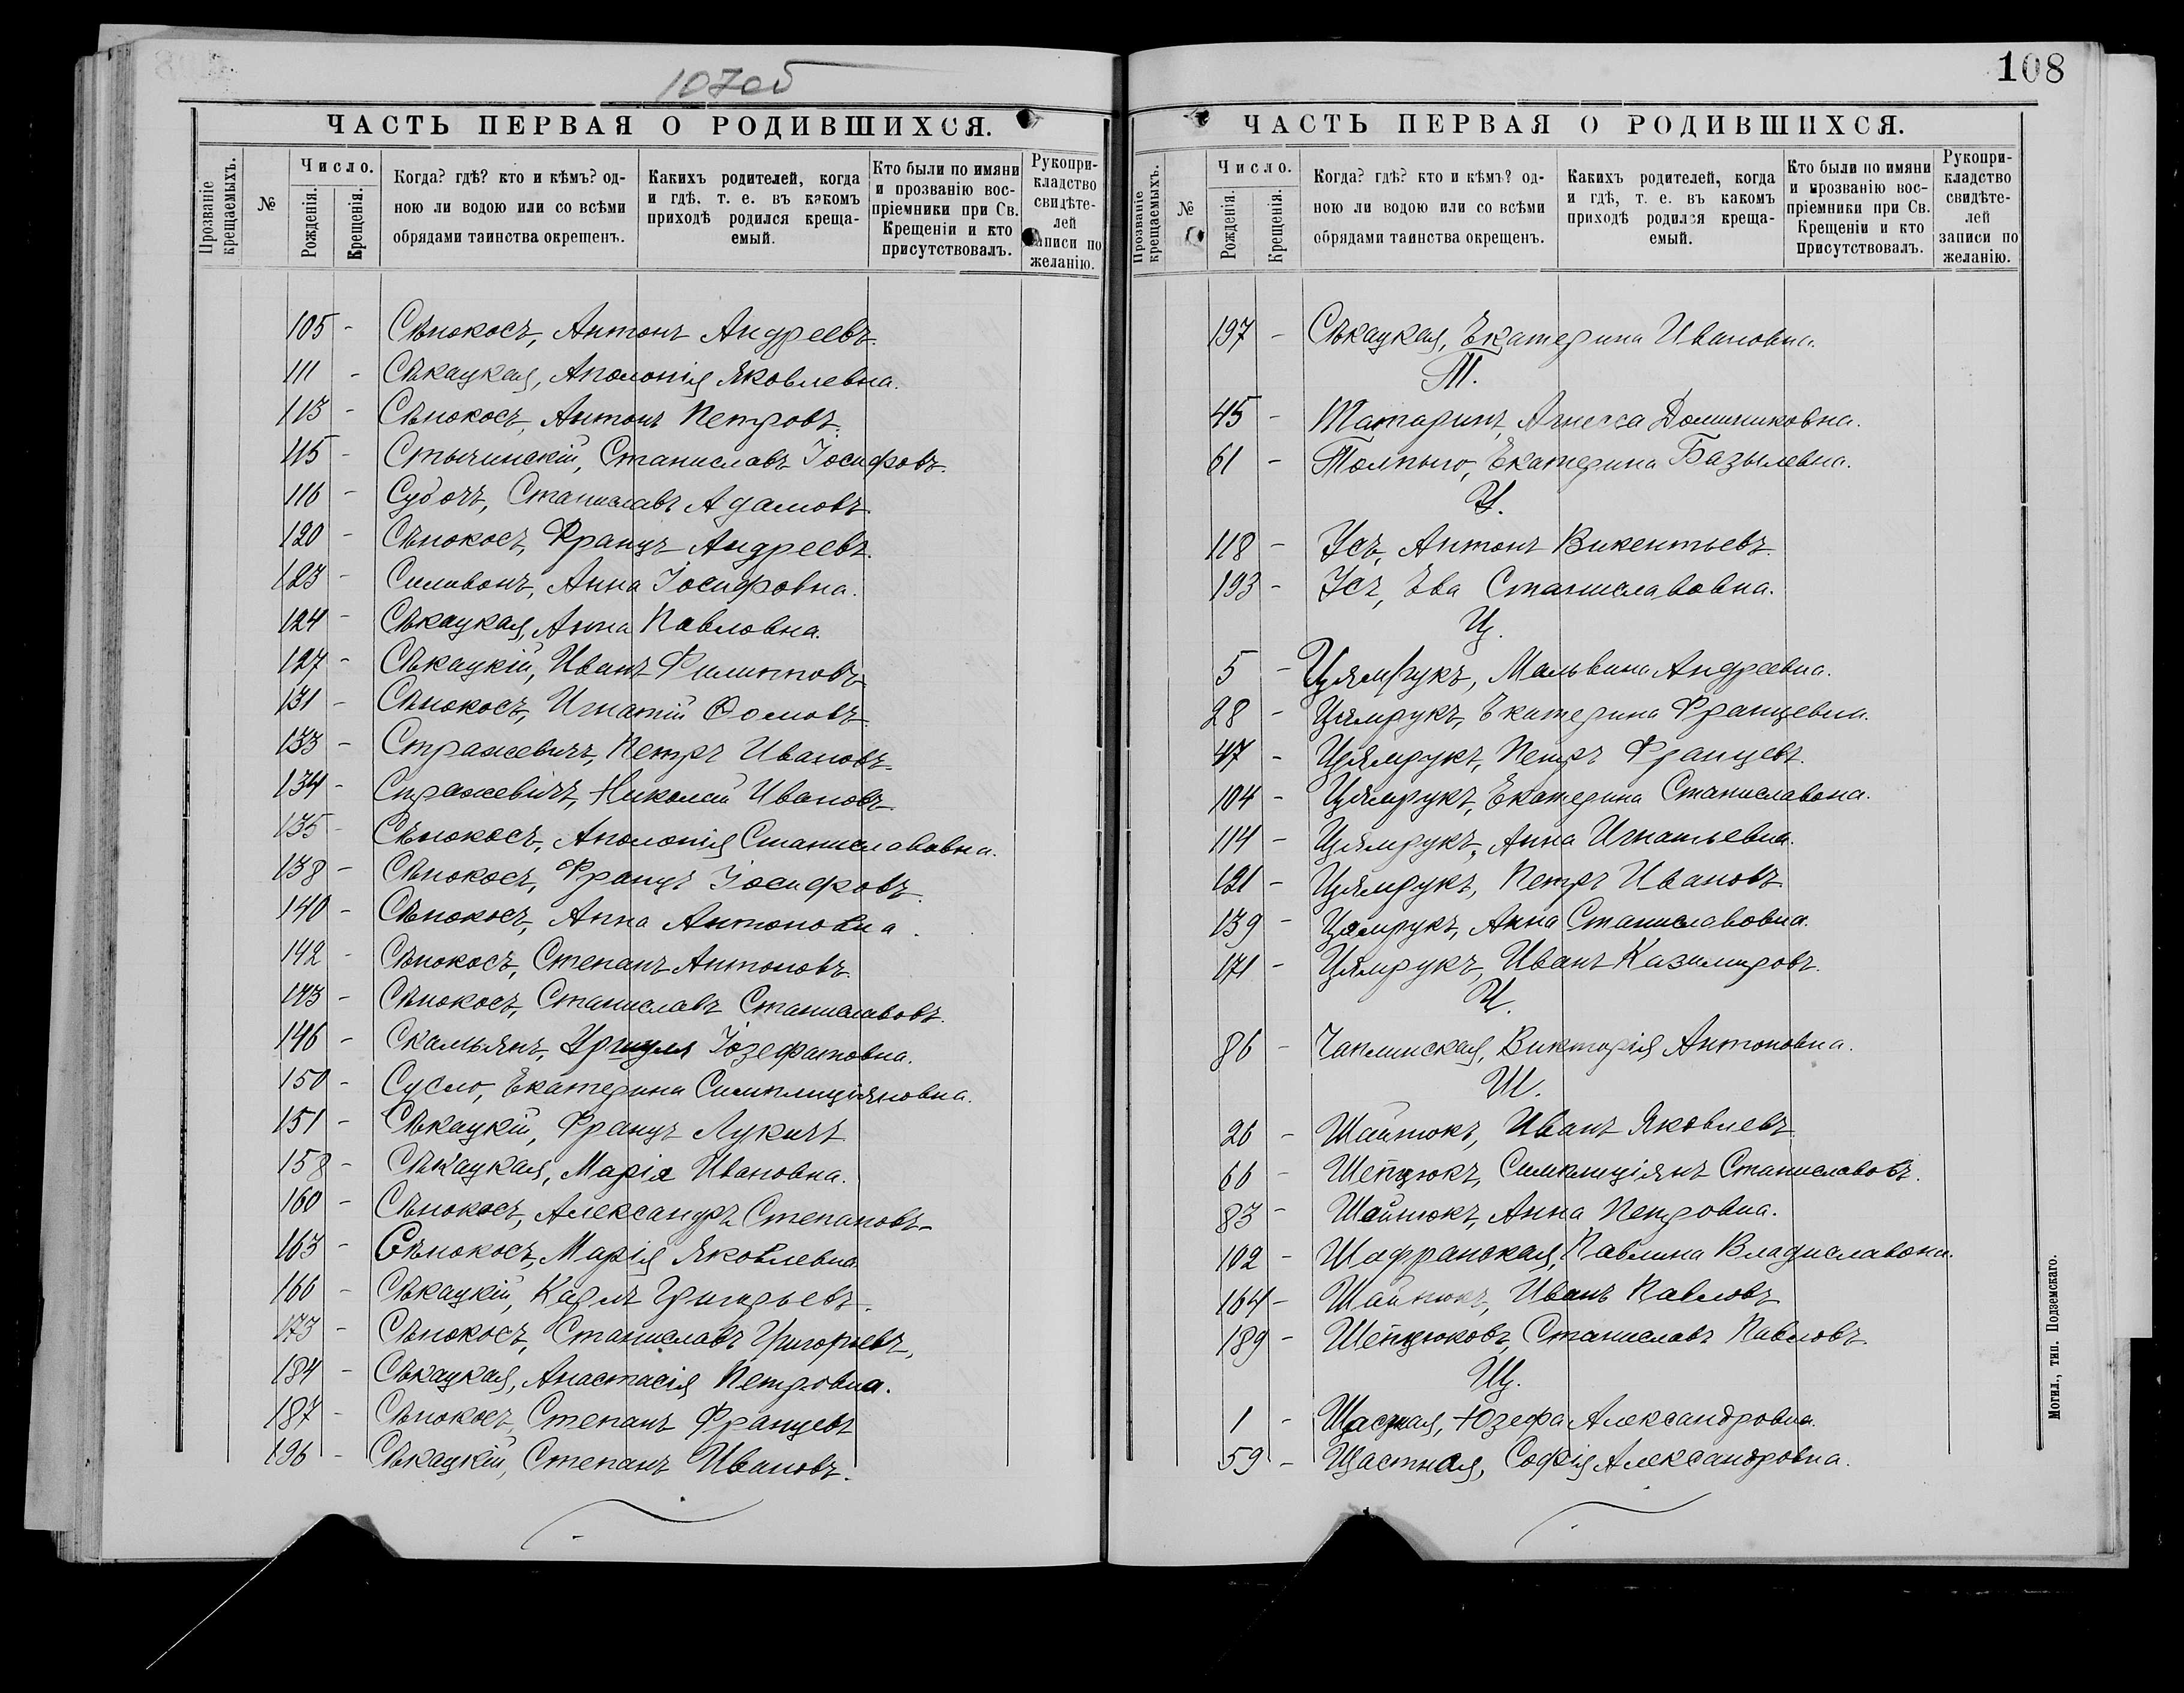 107об
ЧАСТЬ ПЕРВАЯ О РОДИВШИХСЯ.
Прозваніе крещаемыхъ.
№
Число.
Рожденія.
Крещенія.
Когда? гдѣ? кто и кѣмъ? од-
ною ли водою или со всѣми
обрядами таинства окрещенъ.
Какихъ родителей, когда
и гдѣ, т. е. въ какомъ
приходѣ родился креща-
емый.
Кто были по имяни
и прозванію вос-
пріемники при Св.
Крещеніи и кто
присутствовалъ.
Рукопри-
кладство
свидѣте-
лей
записи по
желанію.
105 - Сѣнокосъ, Антонъ Андреевъ.
111 - Сѣкацкая, Аполонія Яковлевна.
113 - Сѣнокосъ, Антонъ Петровъ.
115 - Стычинскій, Станиславъ Іосифовъ.
116 - Субочъ, Станиславъ Адамовъ.
120 - Сѣнокосъ, Францъ Андреевъ.
123 - Силивонъ, Анна Іосифовна.
124 - Сѣкацкая, Анна Павловна.
127 - Сѣкацкій, Иванъ Филипповъ.
131 - Сѣнокосъ, Игнатій Ѳомовъ.
133 - Стражевичъ, Петръ Ивановъ.
134 - Стражевичъ, Николай Ивановъ.
135 - Сѣнокосъ, Аполонія Станиславовна.
138 - Сѣнокосъ, Францъ Іосифовъ.
140 - Сѣнокосъ, Анна Антоновна.
142 - Сѣнокосъ, Степанъ Антоновъ.
143 - Сѣнокосъ, Станиславъ Станиславовъ.
146 - Скамьянъ, Уршуля Іозефатовна.
150 - Сусло, Екатерина Симплиціяновна.
151 - Сѣкацкій, Францъ Лукичъ
158 - Сѣкацкая, Марія Ивановна.
160 - Сѣнокосъ, Александръ Степановъ.
163 - Сѣнокосъ, Марія Яковлевна
166 - Сѣкацкій, Карлъ Григорьевъ.
173 - Сѣнокосъ, Станиславъ Григорьевъ,
184 - Сѣкацкая, Анастасія Петровна.
187 - Сѣнокосъ, Степанъ Францевъ
196 - Сѣкацкій, Степанъ Ивановъ.
108
ЧАСТЬ ПЕРВАЯ О РОДИВШИХСЯ.
Прозваніе крещаемыхъ.
№
Число.
Рожденія.
Крещенія.
Когда? гдѣ? кто и кѣмъ? од-
ною ли водою или со всѣми
обрядами таинства окрещенъ.
Какихъ родителей, когда
и гдѣ, т. е. въ какомъ
приходѣ родился креща-
емый.
Кто были по имяни
и прозванію вос-
пріемники при Св.
Крещеніи и кто
присутствовалъ.
Рукопри-
кладство
свидѣте-
лей
записи по
желанію.
197 - Сѣкацкая, Екатерина Ивановна.
Т.
45 - Татаринъ, Агнесса Доминиковна.
61 - Толпыго, Екатерина Базылевна.
У.
118 - Усъ, Антонъ Викентьевъ.
193 - Усъ, Ева Станиславовна.
Ц.
5 - Цямрукъ, Мальвина Андреевна.
28 - Цямрукъ, Екатерина Францевна.
47 - Цямрукъ, Петръ Францевъ.
104 - Цямрукъ, Екатерина Станиславовна.
114 - Цямрукъ, Анна Игнатьевна.
121 - Цямрукъ, Петръ Ивановъ
139 - Цямрукъ, Анна Станиславовна.
171 - Цямрукъ, Иванъ Казимировъ.
Ч.
86 - Чаплинская, Викторія Антоновна.
Ш.
26 - Шайтюкъ, Иванъ Яковлевъ
66 - Шепцюкъ, Симплиціянъ Станиславовъ.
83 - Шайтюкъ, Анна Петровна.
102 - Шафранская, Павлина Владиславовна.
164 - Шайтюкъ, Иванъ Павловъ
189 - Шепцюковъ, Станиславъ Павловъ.
Щ.
1 - Щасная, Юзефа Александровна.
59 - Щастная, Софія Александровна.
Могил., тип. Подземскаго.